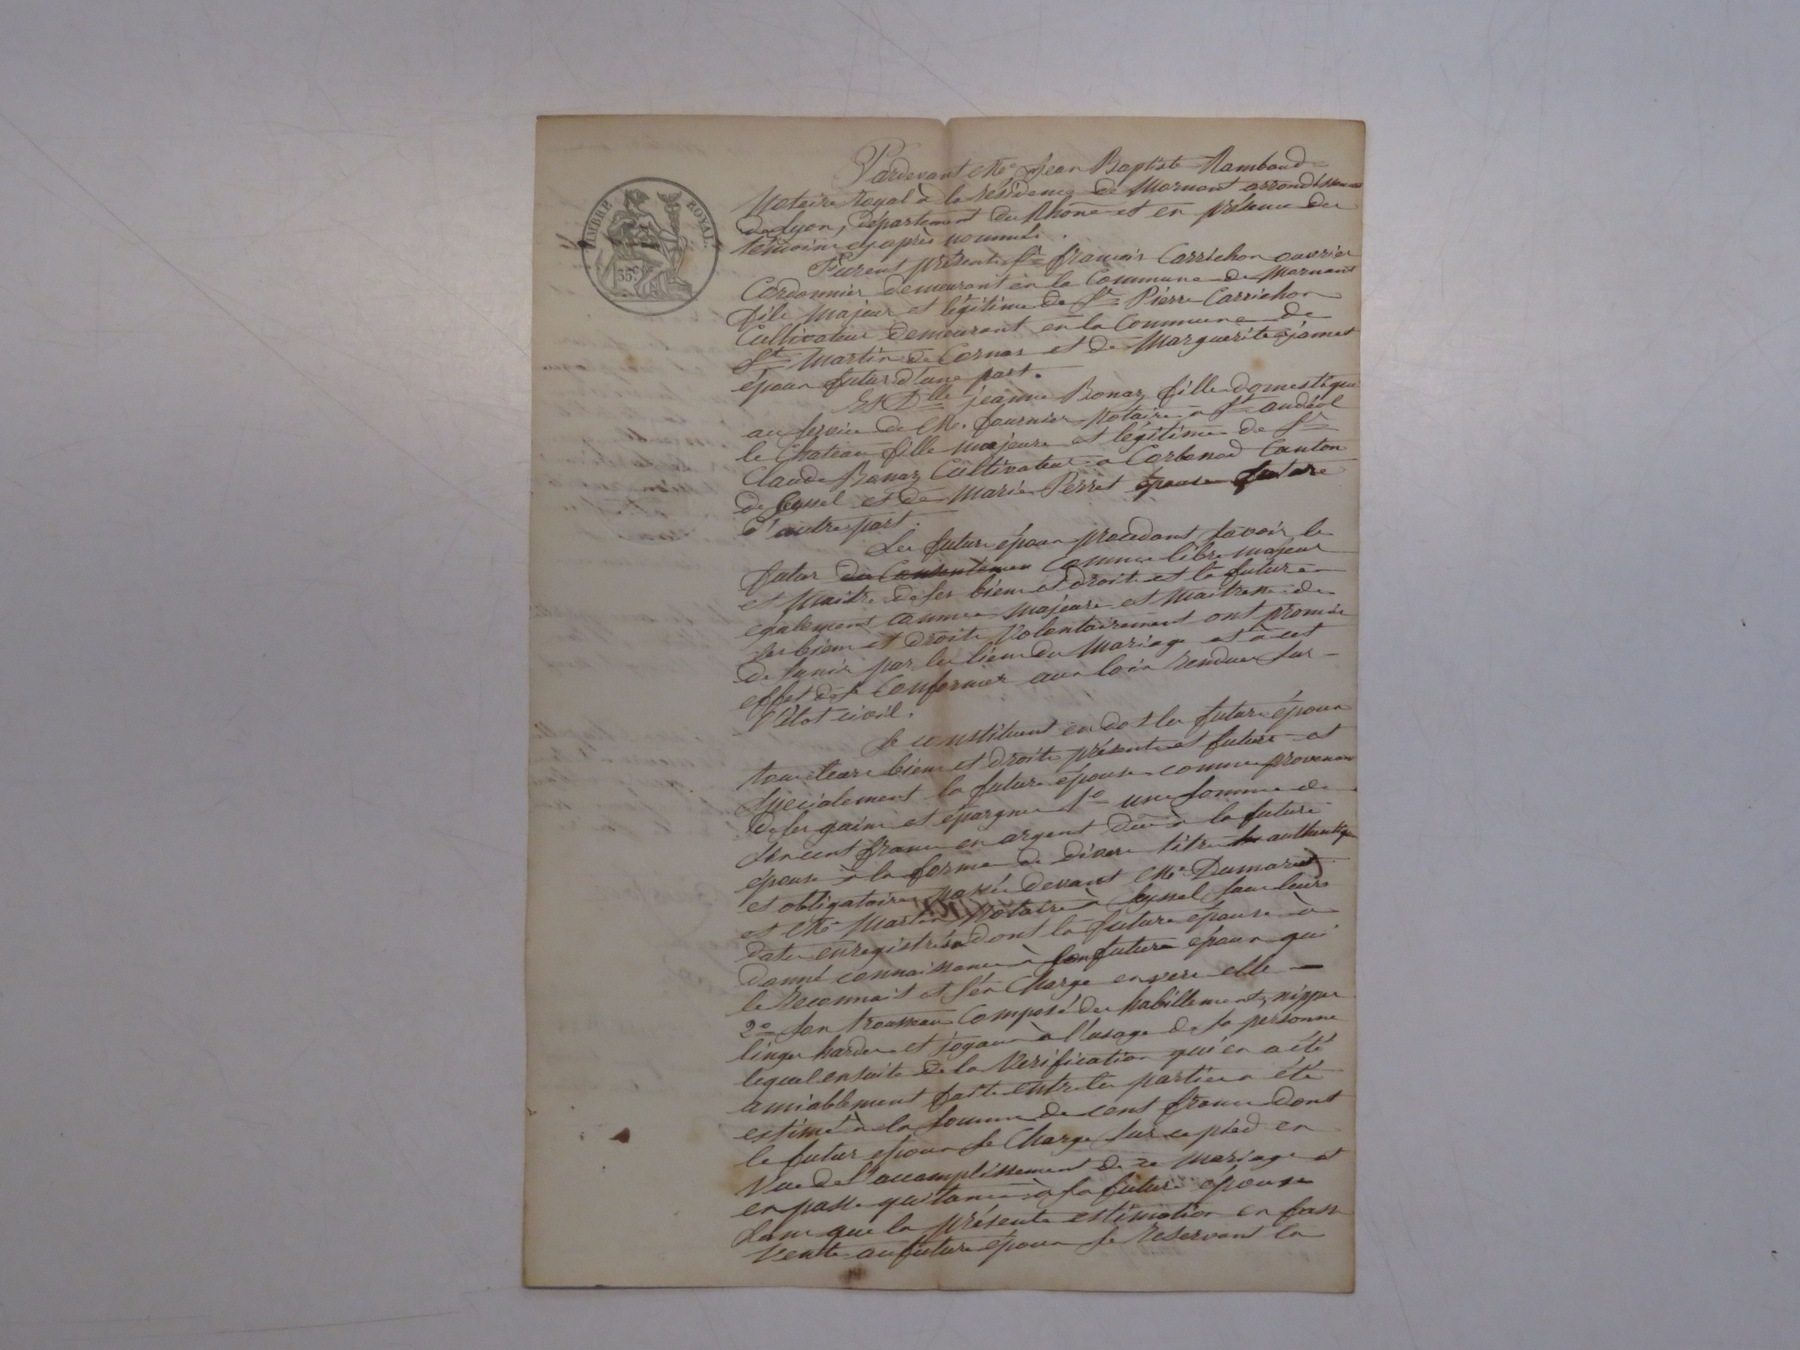 TIMBRE ROYAL
35c
Pardevant Me Jean Baptiste Rambaud
Notaire royal à la résidence de Mornant arrondissement
de Lyon, département du Rhône et en présence des
témoins cy après nommés.
Furent présents Sr françois Carrichon ouvrier
Cordonnier demeurant en la Commune de Mornant
fils majeur et légitime de Sr Pierre Carrichon
Cultivateur demeurant en la Commune de
St Martin de Cornas et de Marguerite jamet
époux futur d'une part.
Et Dlle jeanne Bonaz fille domestique
au service de Me. fournier Notaire à St andéol
le Chateau fille majeure et légitime de Sr
Claude Bonaz Cultivateur à Corbonod Canton
de Seyssel et de Marie Perret épouse future
d'autre part.
Les futurs époux procédant savoir le
futur du Consentemen Comme libre majeur
et maitre de ses biens et droits et la future
également comme majeure et maitresse de
ses biens et droits Volontairement ont promis
de s'unir par les liens du Mariage et à cet
effet de se Conformer aux loix rendues sur
l'état civil.
Se constituent en dot les futurs époux
tous leurs biens et droits présents et futurs et
spécialement la future épouse comme provenan
de ses gains et épargnes 1o une somme de
cent francs en argent due à la future
épouse à la forme de divers titres authentiques
et obligatoires passés devant Me Dumarest
et Me Martin Notaires à Seyssel sous leurs
dates enregistrés dont la future épouse à
donné connaissance à son futur époux qui
le reconnait et s'en Charge envers elle
2o Son trousseau Composé des habillements, nippes
linges hardes et joyaux à l'usage de sa personne
lequel ensuite de la Vérification qui en a été
amiablement faite entre les parties a été
estimé à la somme de cent francs dont
le futur époux se Charge sur ce pied en
Vue de l'accomplissement de ce Mariage et
en passe quitance à sa future épouse
sans que la présente estimation en fasse
Vente au futur époux se réservant la